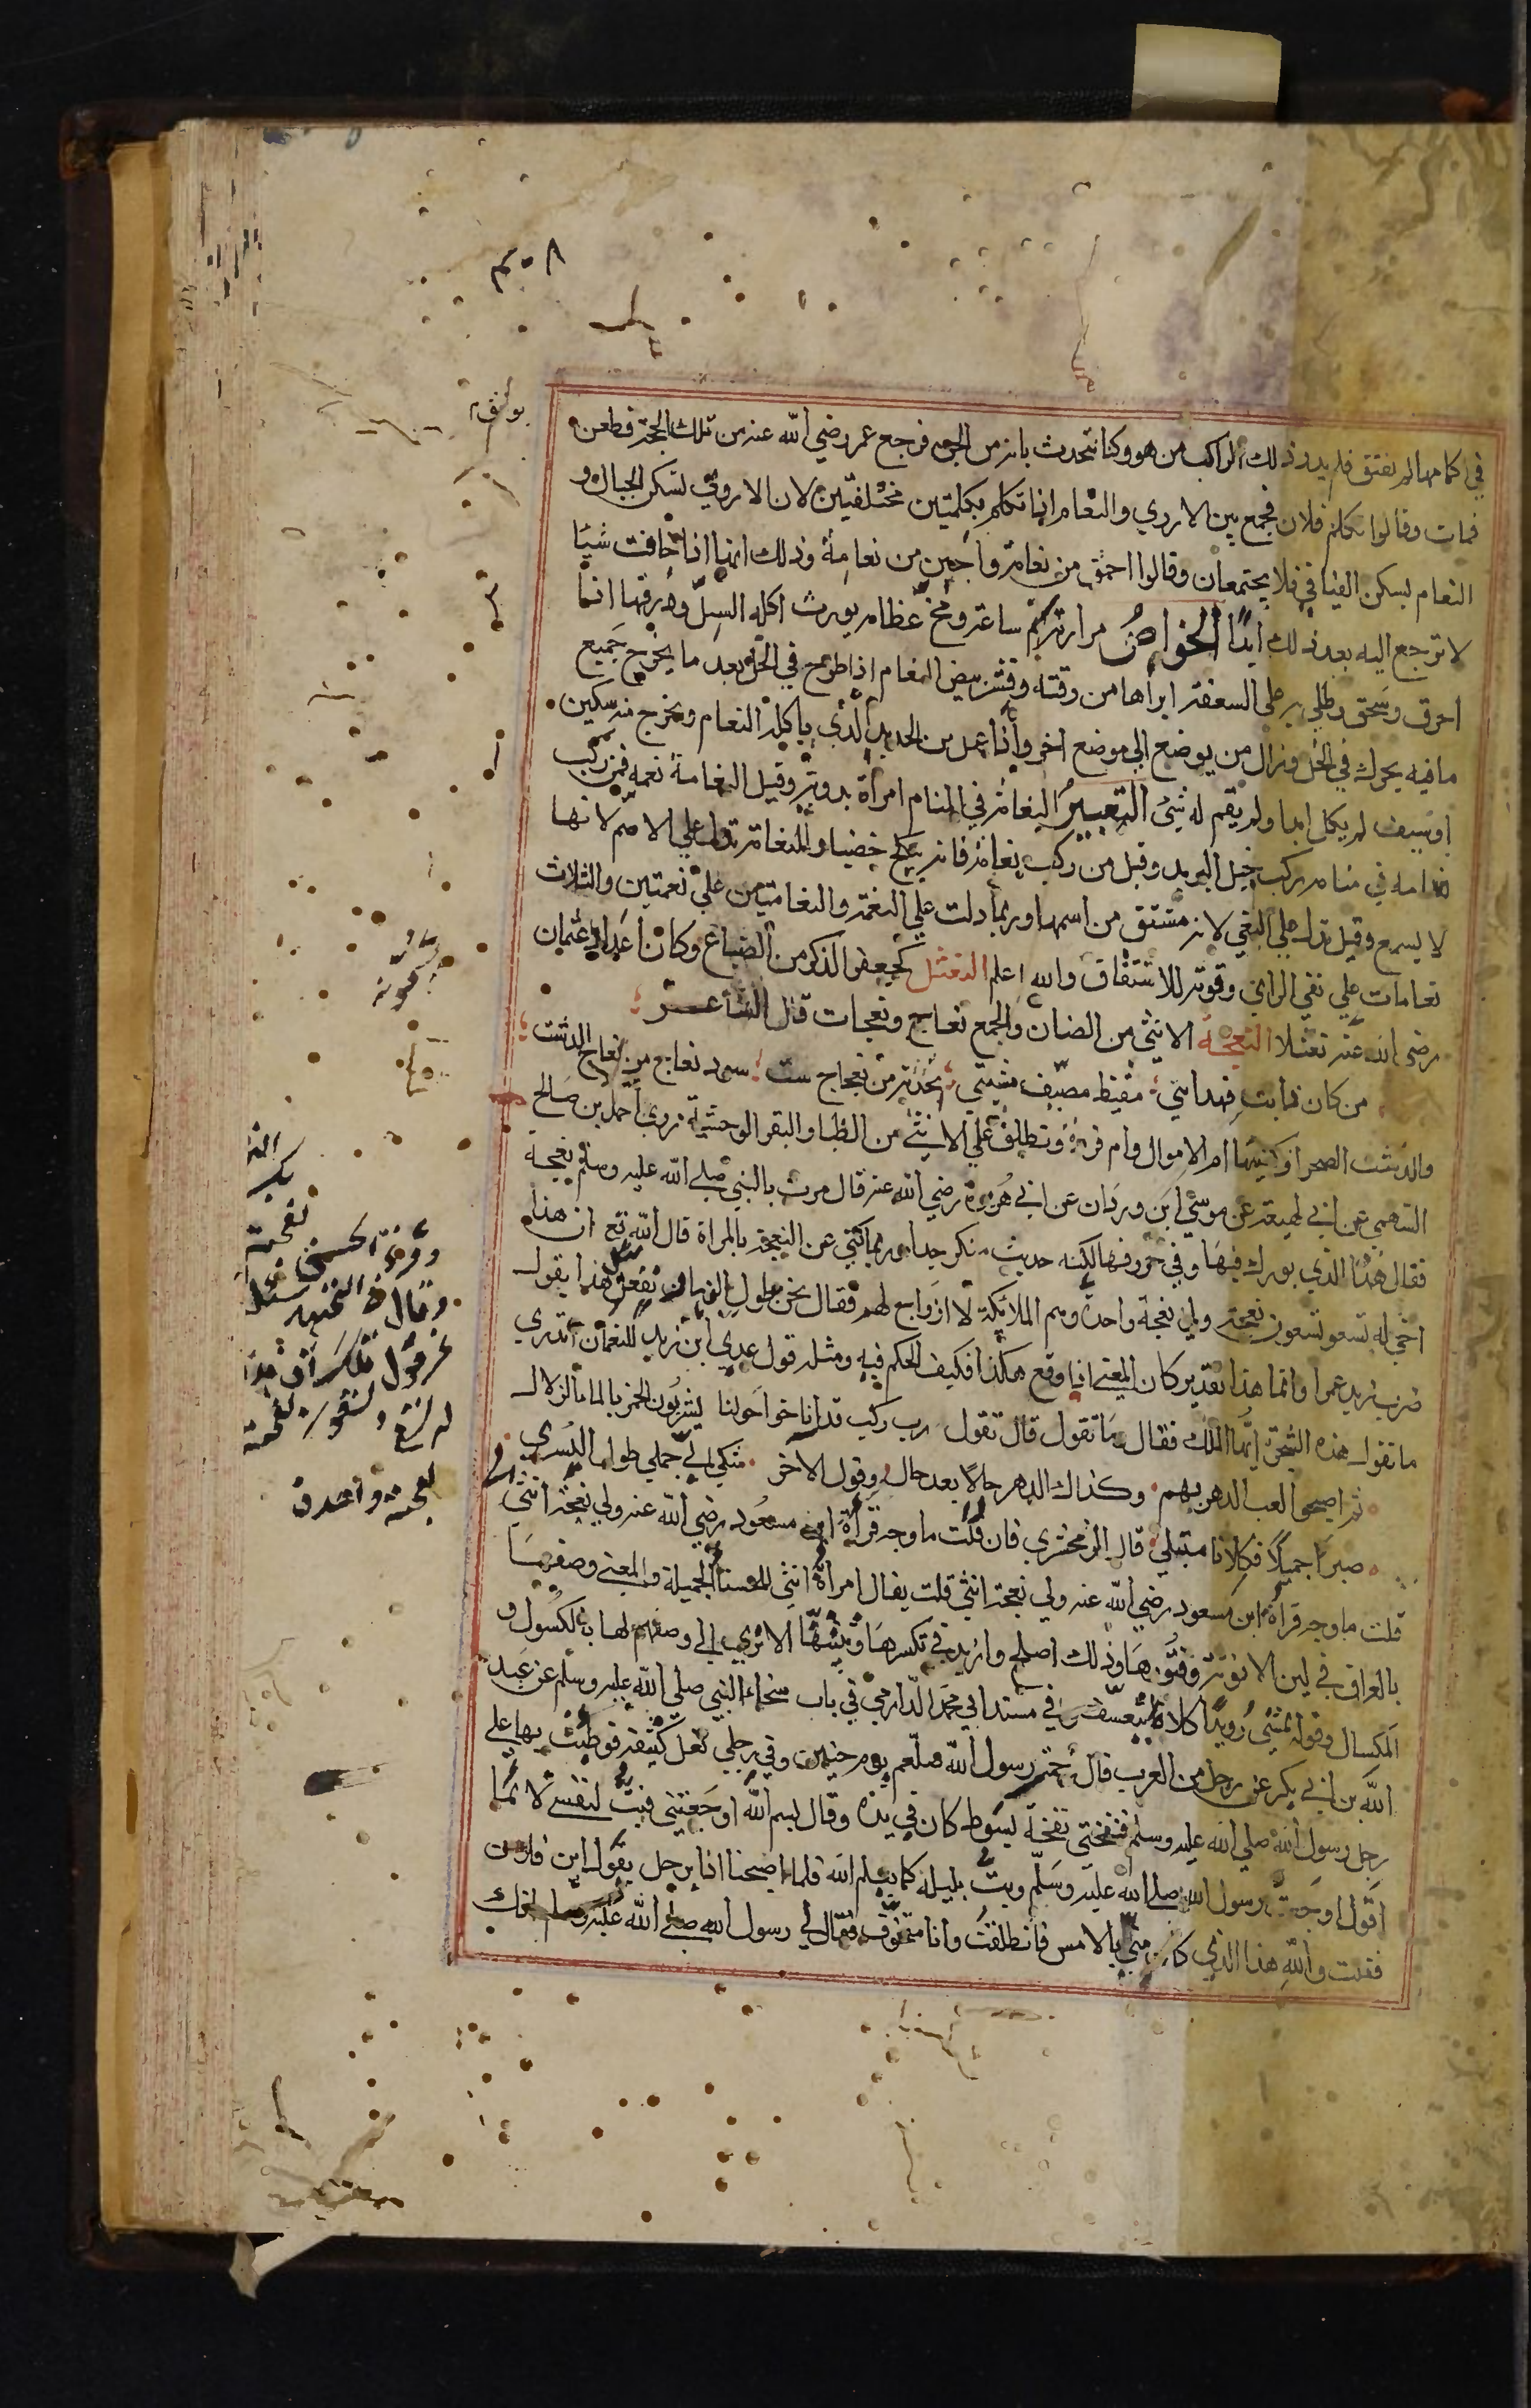 في اكمامها لم تفتق فلم يدر ذلك الراكب من هو وكنا نتحدث بانه من الجن فرجع عمر رضي الله عنه من تلك الحجة فطعن
فمات وقالوا تكلم فلان فجمع بين الاروي والنعام اذا تكلم بكلمتين مختلفتين لان الاروي تسكن الجبال و
النعام يسكن الفيافي فلا يجتمعان وقالوا احمق من نعامة واجبن من نعامة وذلك انها اذا خافت شيا
لا ترجع اليه بعد ذلك ابدًا الخواص مرارته سم ساعة ومخ عظامه يورث اكله السل وذرقها اذا
احرق وسحق وطلي به على السعفة ابراها من وقته وقشر بيض النعام اذا طرح في الخل بعد ما يخرج جميع
ما فيه يحرك في الخل ويزال من موضع الي موضع اخر واذا عمل من الحديد الذي ياكله النعام ويخرج منه سكين
او سيف لم يكل ابدا ولم يقم له شئ التعبير النعامة في المنام امرأة بدوية وقيل النعامة نعمه فمن ركب
نعامه في منامه ركب خيل البريد وقيل من ركب نعامة فانه ينكح خصيا والنعامة تدل على الاصم لانها
لا يسمع وقيل تدل على النعي لانه مشتق من اسمها وربما دلت علي النعمة والنعامتين علي نعمتين والثلاث
نعامات علي نفي الراي وقوته للاشتقاق والله اعلم النعثل كجعفر الذكر من الضباع وكان اعداء عثمان
رضى الله عنه نعثلا النعجة الانثي من الضان والجمع نعاج ونعجات قال الشاعر
من كان ذا بت فهذا بتي مقيظ مصيف مشتي تخذته من نعجات ست سود نعاج من نعاج الدشت
والدشت الصحرا وكنيتها ام الاموال وام فروة وتطلق علي الانثي من الظبا والبقر الوحشية روي احمد بن صالح
السهمي عن ابي لهيعة عن موسي ابن وردان عن ابي هريرة رضي الله عنه قال مرت بالنبي صلي الله عليه وسلم نعجة
فقال هذه الذي بورك فيها وفي خروفها لكنه حديث منكر جدا وربما كني عن النعجة بالمراة قال الله تع ان هذا
اخي له تسع وتسعون نعجة ولي نعجة واحدة وهم الملائكة لا ازواج لهم فقال نحن طول النهار نفعل هذا يقول
ضرب زيد عمرا وانما هذا تقدير كان المعني اذا وقع هكذا فكيف الحكم فيه ومثله قول عدي ابن زيد للنعمان اتدري
ما تقول هذه الشجرة ايها الملك فقال ما تقول قال تقول رب ركب قد اناخوا حولنا يشربون الخمر بالماء الزلال
ثم اضحوا لعب الدهر بهم وكذاك الدهر حالًا بعد حال وقول الاخر شكي الي جملي طول السري
صبرًا جميلًا فكلانا مبتلي قال الزمخشري فان قلت ما وجه قرأة ابن مسعود رضي الله عنه ولي نعجة انثي
قلت ما وجه قرأة ابن مسعود رضي الله عنه ولي نعجة انثي قلت يقال امرأة انثي للحسنا الجميلة والمعني وصفها
بالعراق في لين الانوثة وفتورها وذلك اصلح وازيد في تكسرها وتثنيها الا تري الي وصفهم لها بالكسول و
المكسال وقوله تمشي رويدًا كلاه في مسند ابي محمد الدارمي في باب سخاء النبي صلي الله عليه وسلم عن عبد
الله بن ابي بكر عن رجل من العرب قال رسول الله صلعم يوم حنين وفي رجلي نعل كثيفة فوطئت بها علي
رجل رسول الله صلي الله عليه وسلم فنفحني نفحة بسوط كان في يده وقال بسم الله اوجعتني فبت لنفسي لائما
اقول اوجعت رسول الله صلي الله عليه وسلم وبت بليلة كما يعلم الله فلما اصبحنا اذا برجل يقول اين فلان
فقلت والله هذا الذي كان مني بالامس فانطلقت وانا متخوف فقال لي رسول الله صلي الله عليه وسلم انك
نعجة
نعجة واحدة